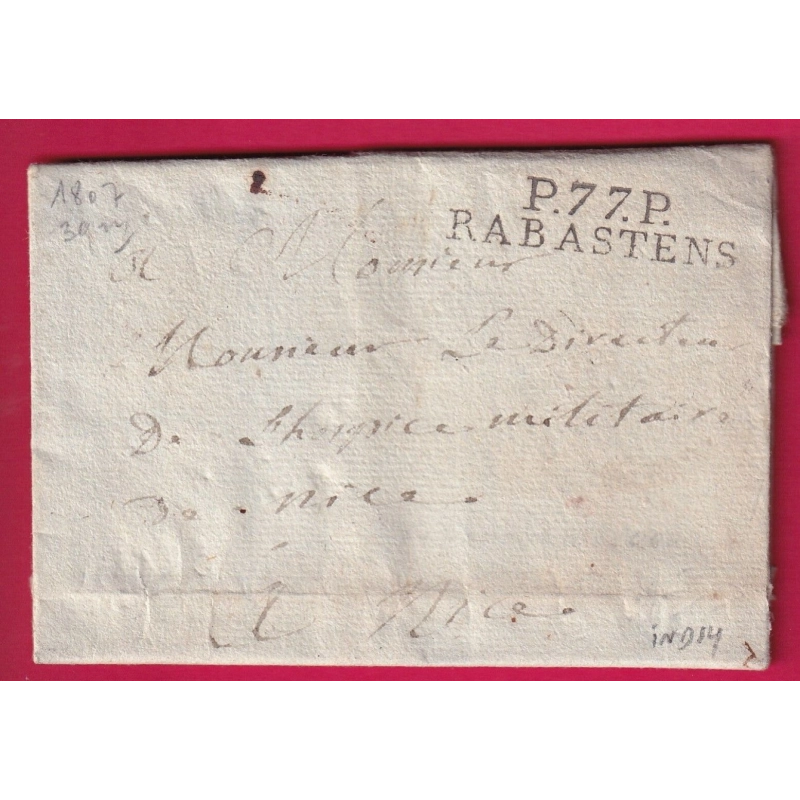 1807
P.77.P.
RABASTENS
A Monsieur
Monsieur Le Directeu
De Lhospice militaire
De nice.
A Nice.
IND 14